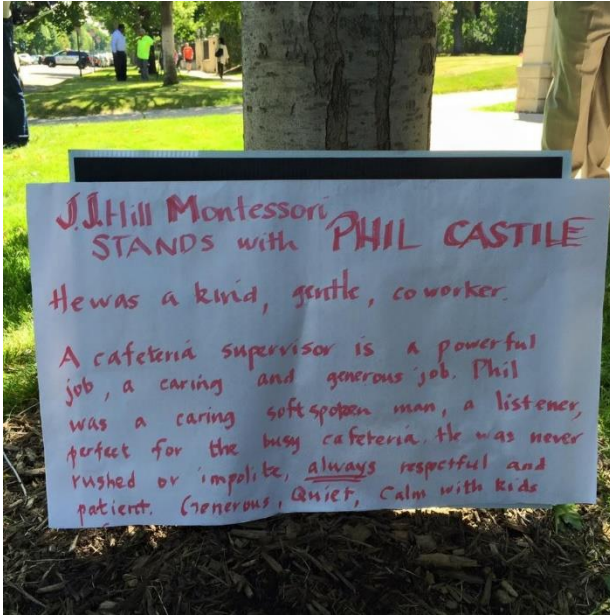 J.J.Hill Montessori
STANDS with PHIL CASTILE
He was a kind, gentle, coworker.
A cafeteria supervisor is a powerful
job, a caring and generous job. Phil
was a caring soft spoken man, a listener,
perfect for the busy cafeteria. He was never
rushed or impolite, always respectful and
patient. Generous, Quiet, Calm with kids